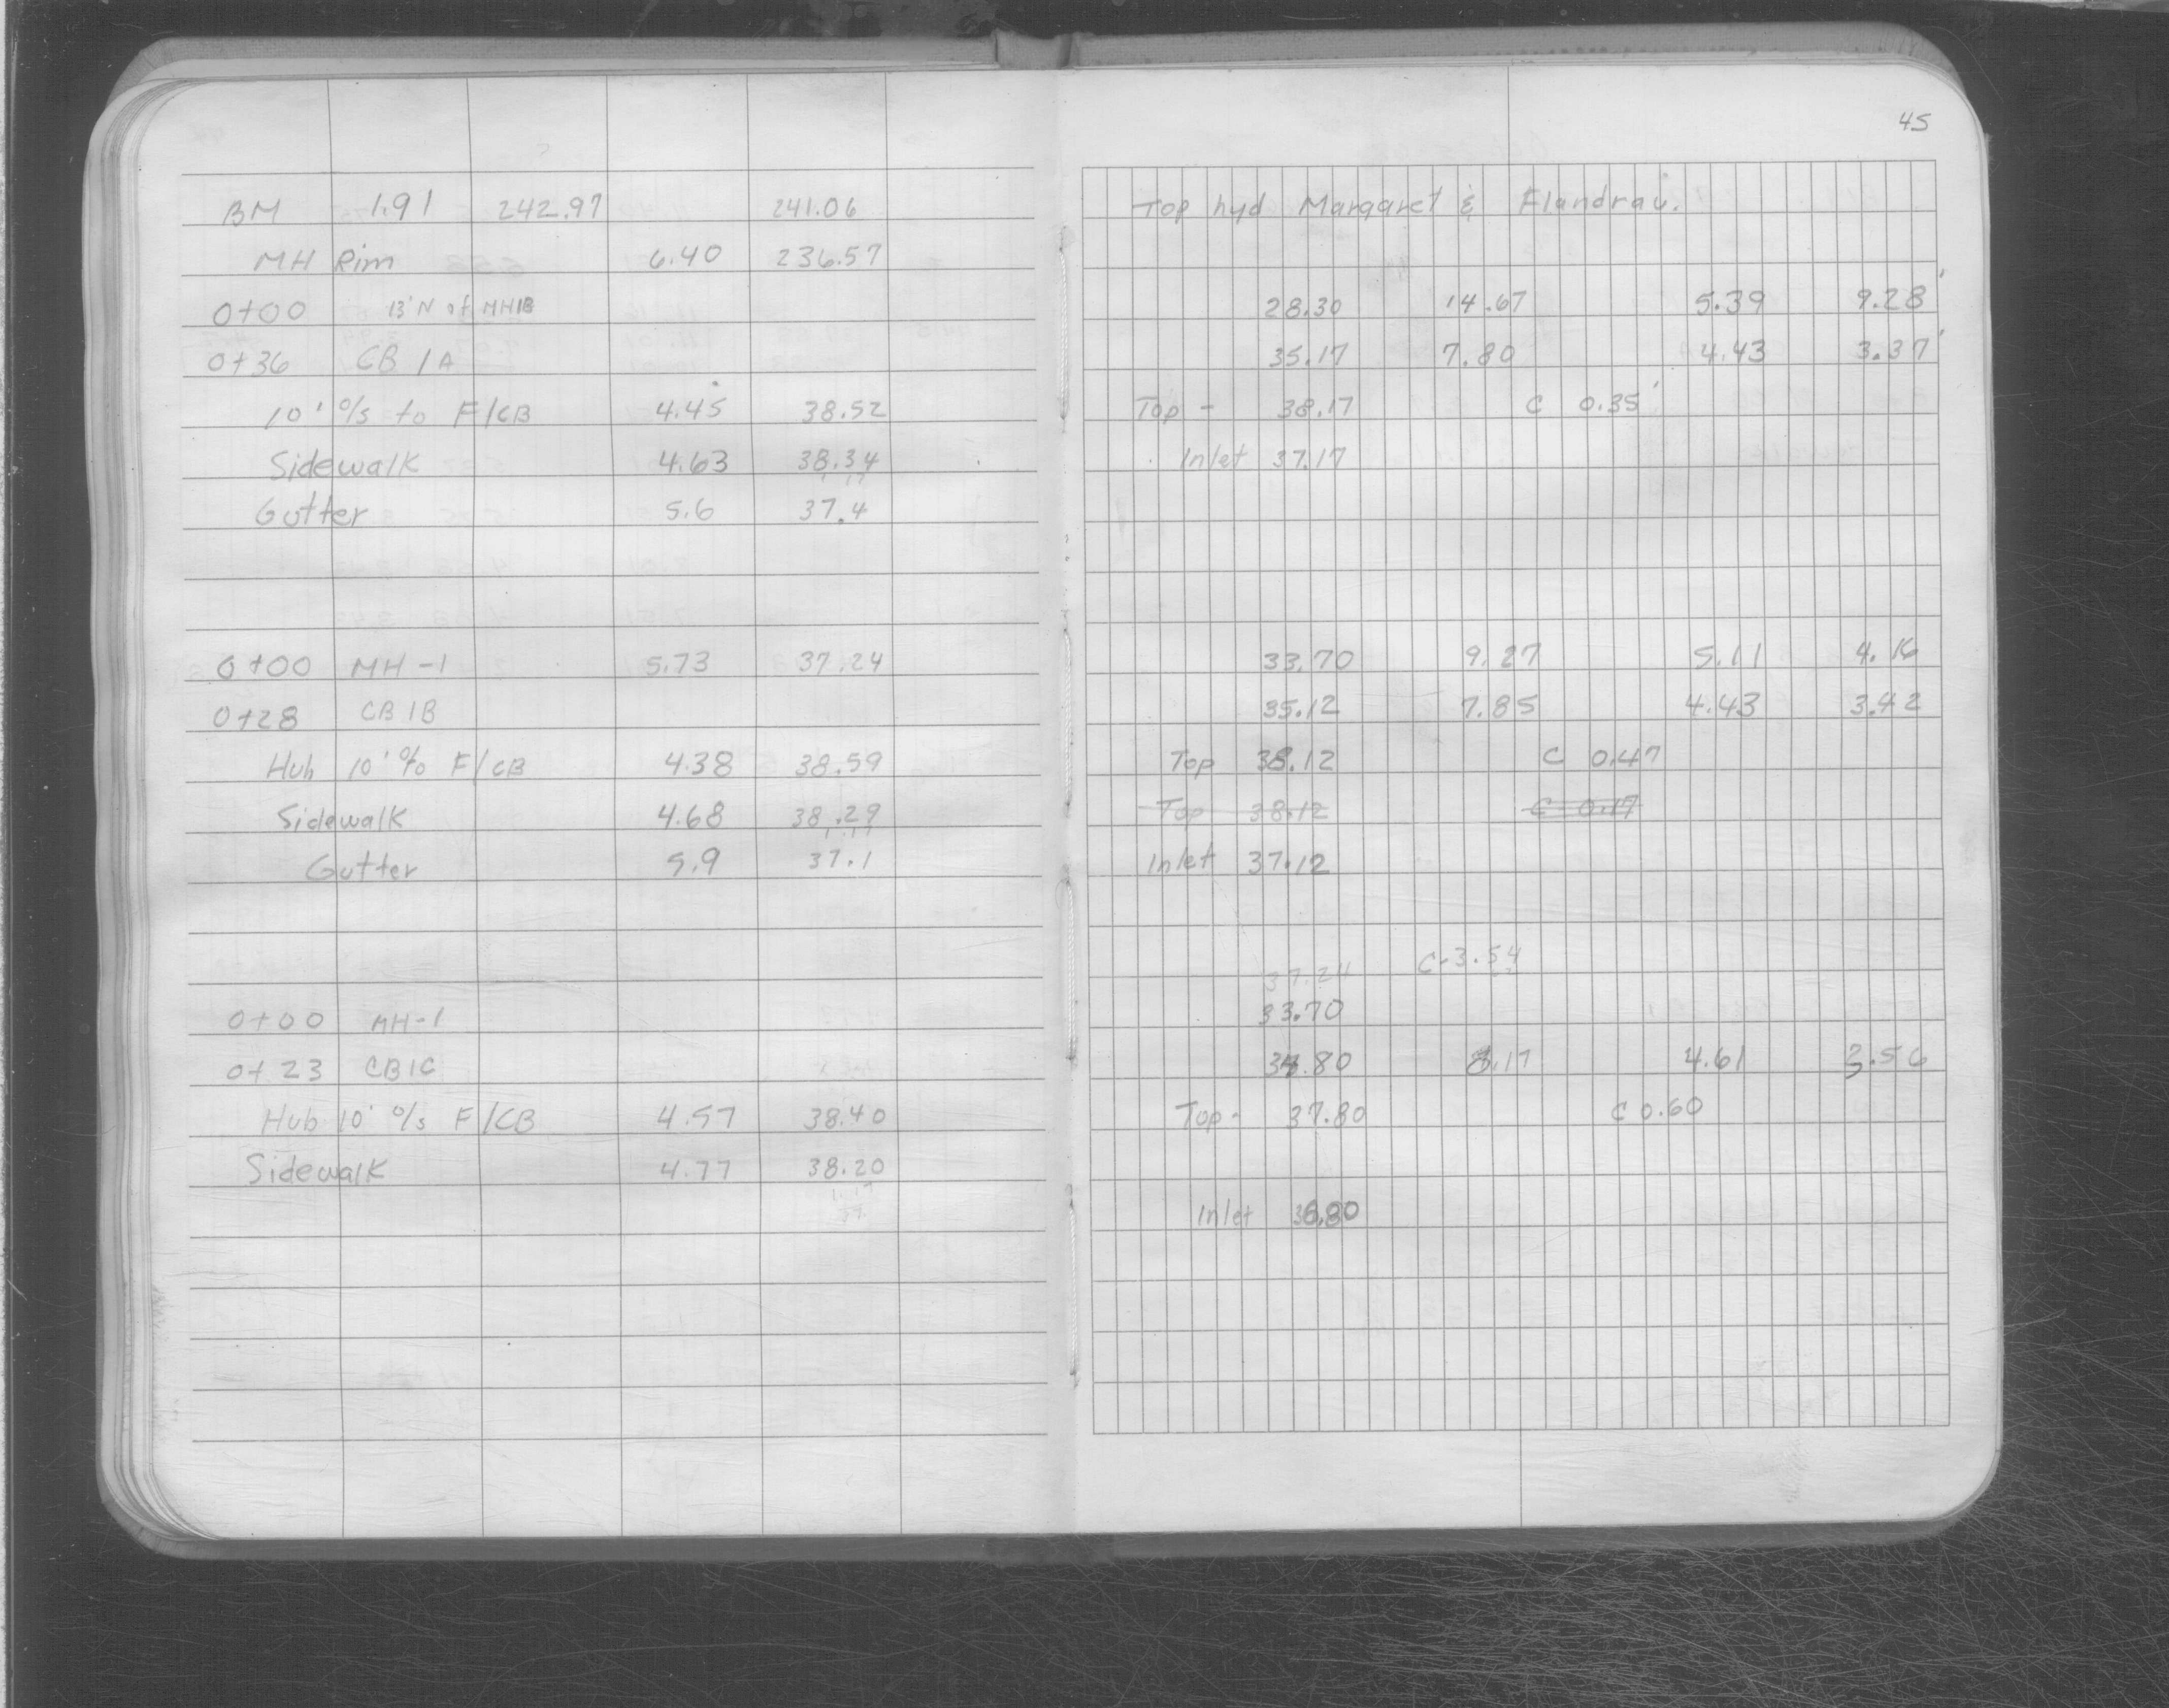 45
BM 1.91 242.97 241.06 Top hyd Margaret & Flandrau.
MH Rim 6.40 236.57
0+00 13' N of MH1B 28.30 14.67 5.39 9.28'
0+36 CB 1A 35.17 7.80 4.43 3.37'
10' o/s to F/CB 4.45 38.52 Top - 38.17 C 0.35'
Sidewalk 4.63 38.34 Inlet 37.17
Gutter 5.6 37.4
0+00 MH-1 5.73 37.24 33.70 9.27 5.11 4.16
0+28 CB 1B 35.12 7.85 4.43 3.42
Hub 10' o/s F/CB 4.38 38.59 Top 38.12 C 0.47
Sidewalk 4.68 38.29 Top 38.12 C 0.17
Gutter 5.9 37.1 Inlet 37.12
37.24 C-3.54
0+00 MH-1 33.70
0+23 CB1C 34.80 8.17 4.61 3.56
Hub 10' o/s F/CB 4.57 38.40 Top - 37.80 C 0.60
Sidewalk 4.77 38.20
Inlet 36.80